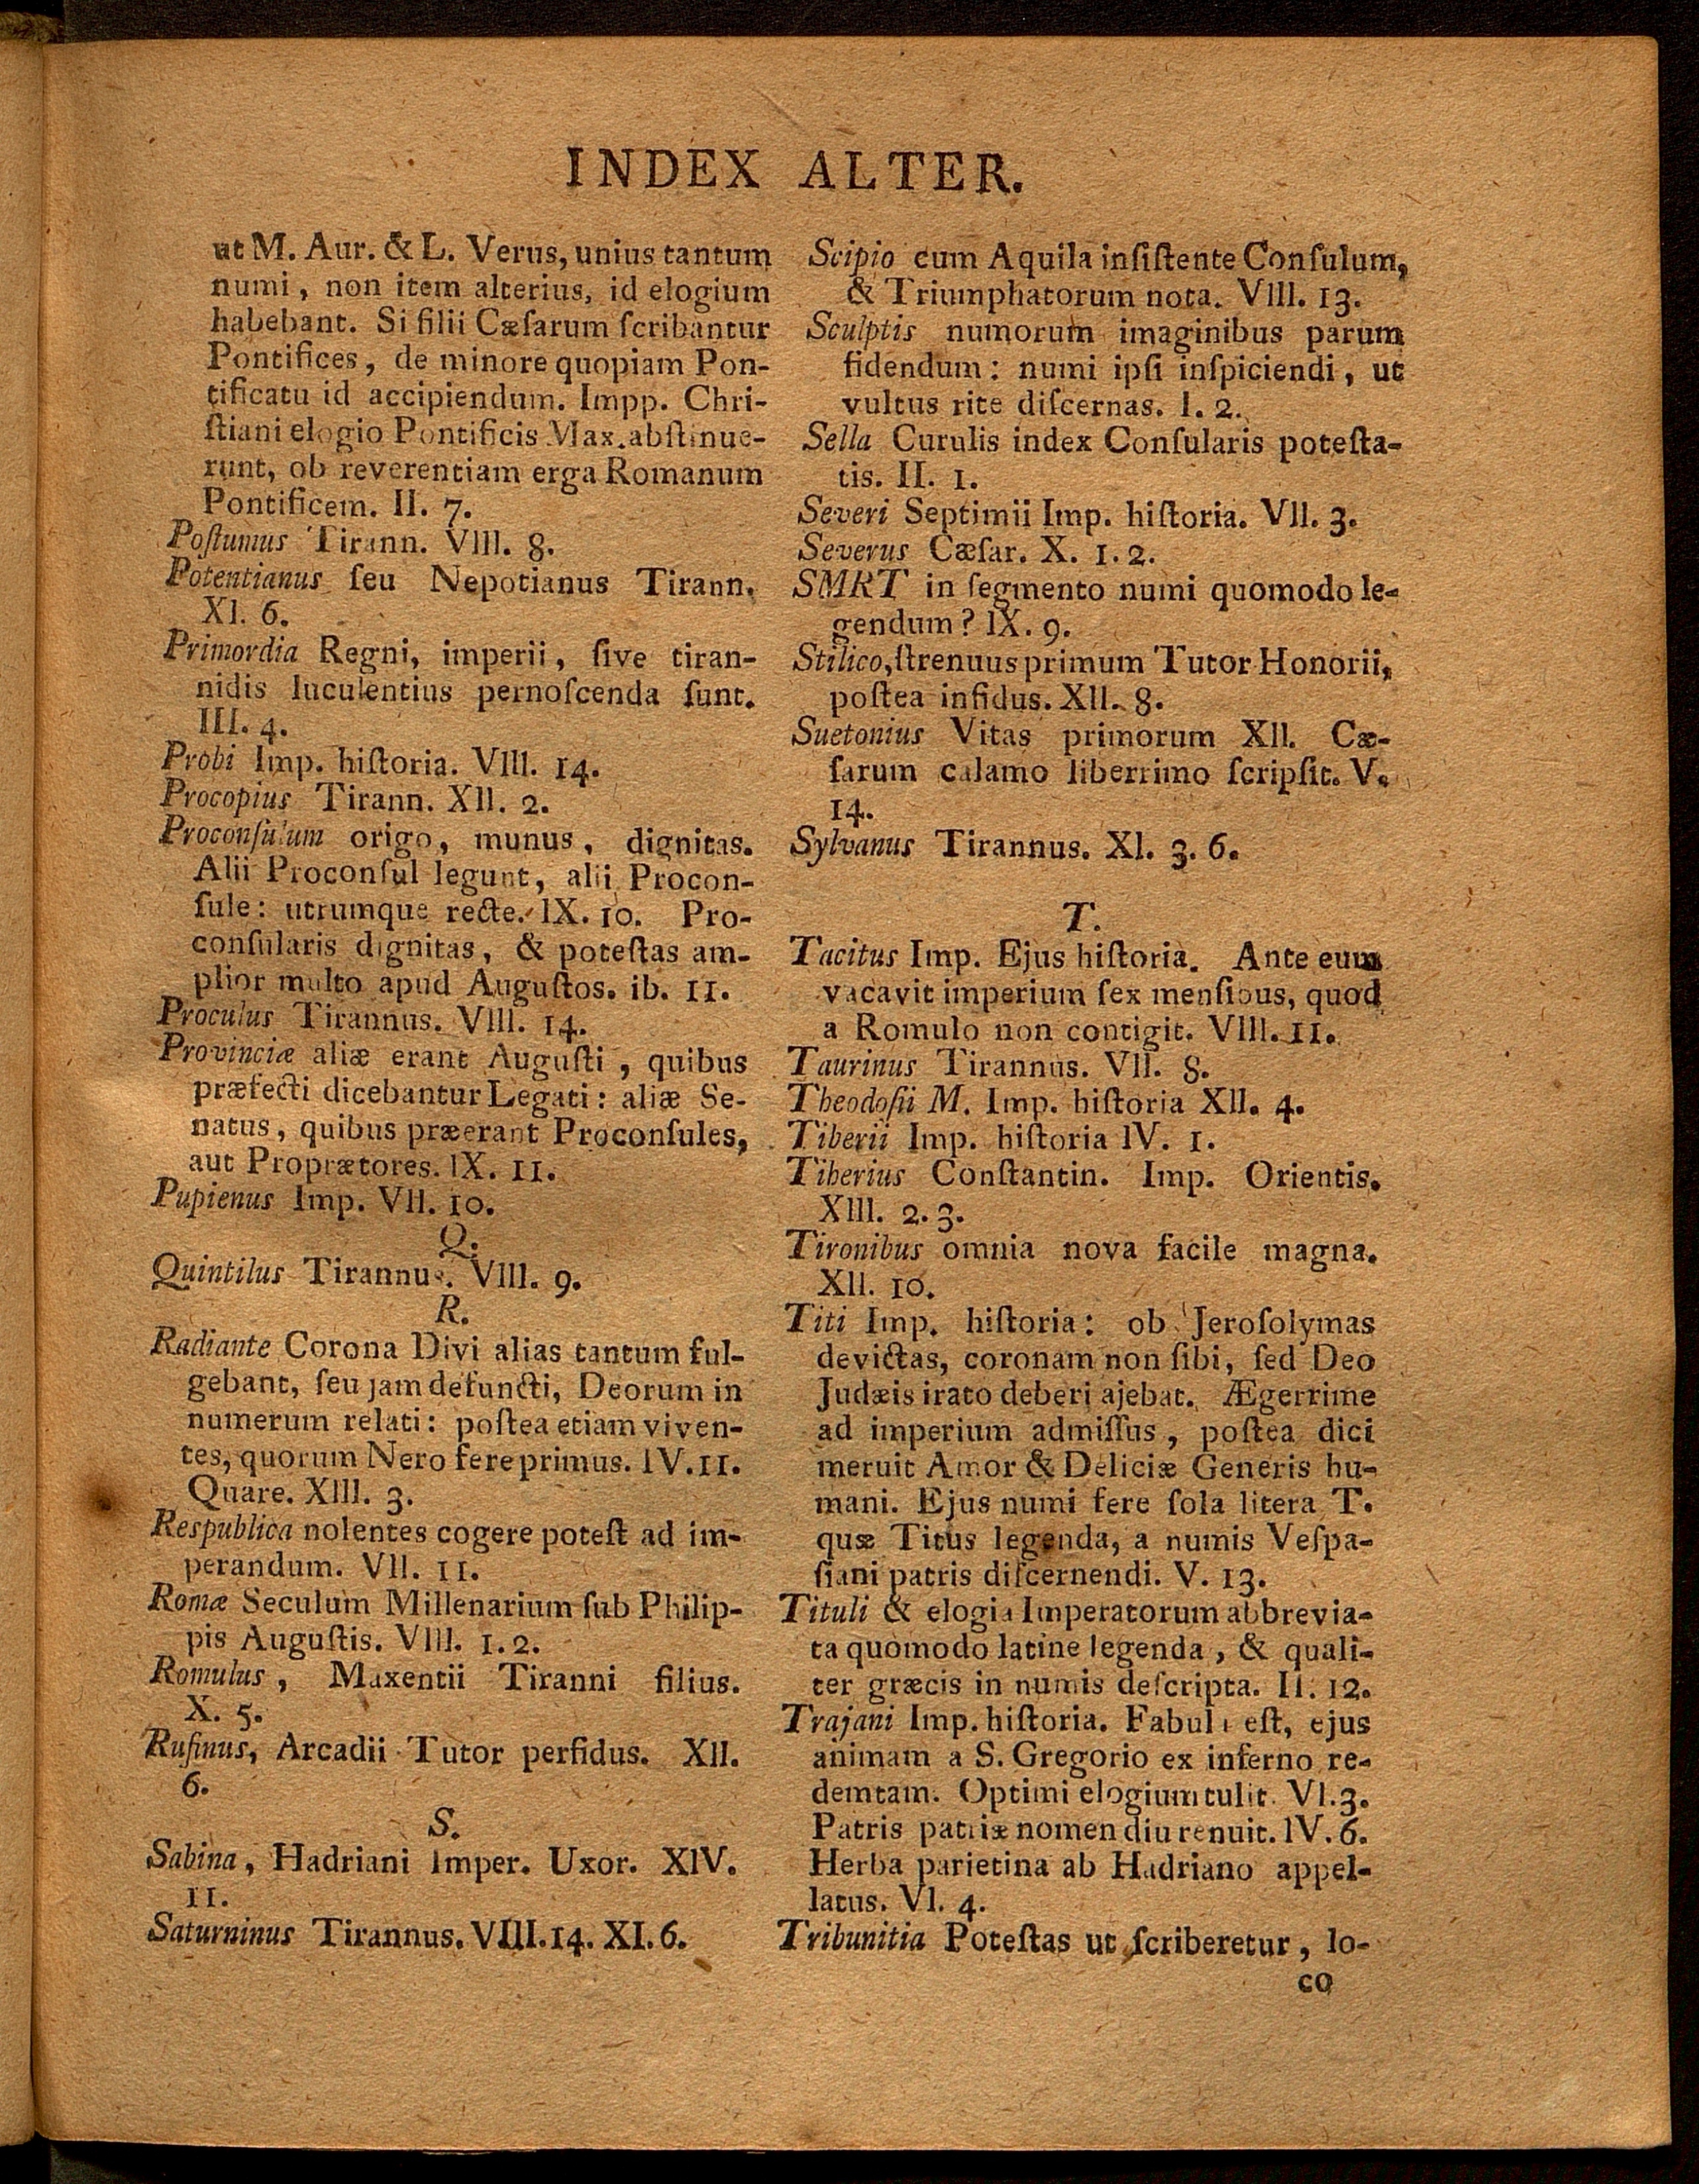 INDEX ALTER.
ut M. Aur. & L. Verus, unius tantum
numi, non item alterius, id elogium
habebant. Si filii Cæſarum ſcribantur
Pontifices, de minore quopiam Pon-
tificatu id accipiendum. Impp. Chri-
ſtiani elogio Pontificis Max. abſtinue-
runt, ob reverentiam erga Romanum
Pontificem. II. 7.
Poſtumus Tirann. VIII. 8.
Potentianus ſeu Nepotianus Tirann.
XI. 6.
Primordia Regni, imperii, ſive tiran-
nidis luculentius pernoſcenda ſunt.
III. 4.
Probi Imp. hiſtoria. VIII. 14.
Procopius Tirann. XII. 2.
Proconſulum origo, munus, dignitas.
Alii Proconſul legunt, alii Procon-
ſule: utrumque recte. IX. 10. Pro-
conſularis dignitas, & poteſtas am-
plior multo apud Auguſtos. ib. 11.
Proculus Tirannus. VIII. 14.
Provinciæ aliæ erant Auguſti, quibus
præfecti dicebantur Legati: aliæ Se-
natus, quibus præerant Proconſules,
aut Proprætores. IX. 11.
Pupienus Imp. VII. 10.
Q.
Quintilus Tirannus. VIII. 9.
R.
Radiante Corona Divi alias tantum ful-
gebant, ſeu jam defuncti, Deorum in
numerum relati: poſtea etiam viven-
tes, quorum Nero fere primus. IV. 11.
Quare. XIII. 3.
Reſpublica nolentes cogere poteſt ad im-
perandum. VII. 11.
Romæ Seculum Millenarium ſub Philip-
pis Auguſtis. VIII. 1. 2.
Romulus, Maxentii Tiranni filius.
X. 5.
Rufinus, Arcadii Tutor perfidus. XII.
6.
S.
Sabina, Hadriani Imper. Uxor. XIV.
11.
Saturninus Tirannus. VIII. 14. XI. 6.
Scipio cum Aquila inſiſtente Conſulum,
& Triumphatorum nota. VIII. 13.
Sculptis numorum imaginibus parum
fidendum: numi ipſi inſpiciendi, ut
vultus rite diſcernas. I. 2.
Sella Curulis index Conſularis poteſta-
tis. II. 1.
Severi Septimii Imp. hiſtoria. VII. 3.
Severus Cæſar. X. 1. 2.
SMRT in ſegmento numi quomodo le-
gendum? IX. 9.
Stilico, ſtrenuus primum Tutor Honorii,
poſtea infidus. XII. 8.
Suetonius Vitas primorum XII. Cæ-
ſarum calamo liberrimo ſcripſit. V.
14.
Sylvanus Tirannus. XI. 3. 6.
T.
Tacitus Imp. Ejus hiſtoria. Ante eum
vacavit imperium ſex menſibus, quod
a Romulo non contigit. VIII. 11.
Taurinus Tirannus. VII. 8.
Theodoſii M. Imp. hiſtoria XII. 4.
Tiberii Imp. hiſtoria IV. 1.
Tiberius Conſtantin. Imp. Orientis.
XIII. 2. 3.
Tironibus omnia nova facile magna.
XII. 10.
Titi Imp. hiſtoria: ob Jeroſolymas
devictas, coronam non ſibi, ſed Deo
Judæis irato deberi ajebat. Ægerrime
ad imperium admiſſus, poſtea dici
meruit Amor & Deliciæ Generis hu-
mani. Ejus numi fere ſola litera T.
quæ Titus legenda, a numis Veſpa-
ſiani patris diſcernendi. V. 13.
Tituli & elogia Imperatorum abbrevia-
ta quomodo latine legenda, & quali-
ter græcis in numis deſcripta. II. 12.
Trajani Imp. hiſtoria. Fabula eſt, ejus
animam a S. Gregorio ex inferno re-
demtam. Optimi elogium tulit. VI. 3.
Patris patriæ nomen diu renuit. IV. 6.
Herba parietina ab Hadriano appel-
latus. VI. 4.
Tribunitia Poteſtas ut ſcriberetur, lo-
co